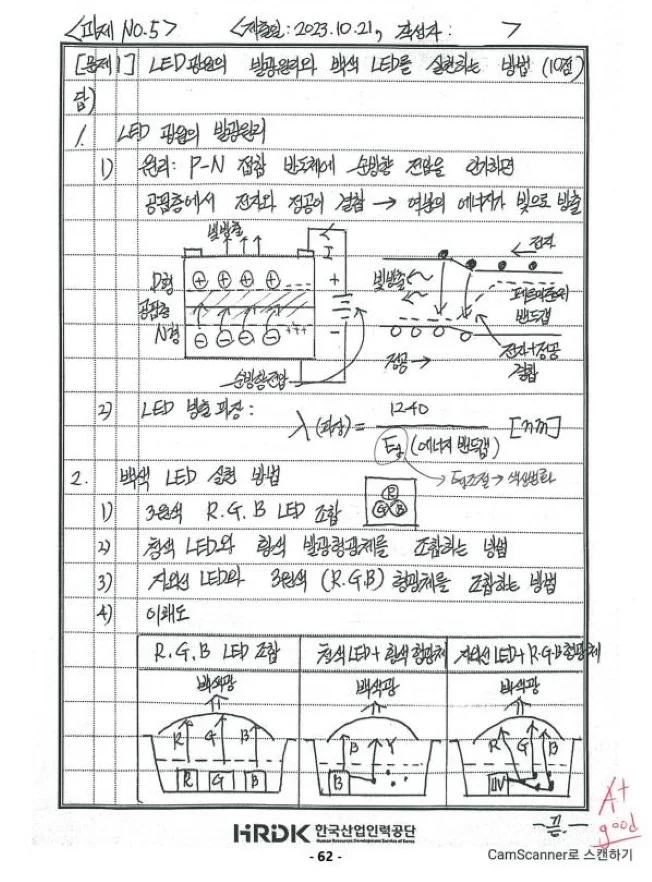 <과제 No.5> <제출일: 2023.10.21, 작성자: >
[문제1] LED광원의 발광원리와 백색 LED를 실현하는 방법 (10점)
답)
1. LED 광원의 발광원리
1) 원리: P-N 접합 반도체에 순방향 전압을 인가하면
공핍층에서 전자와 정공이 결합 → 여분의 에너지가 빛으로 방출
빛방출
I
전자
P형
공핍층
N형
빛방출
페르미준위
밴드갭
정공→
전자+정공
결합
순방향전압
2) LED 방출파장: λ(파장) = 1240 / Eg (에너지 밴드갭) [nm]
→ Eg조절 → 색상변화
2. 백색 LED 실현 방법
1) 3원색 R.G.B LED 조합
R
G B
2) 청색 LED와 황색 발광형광체를 조합하는 방법
3) 자외선 LED와 3원색 (R.G.B) 형광체를 조합하는 방법
4) 이해도
R.G.B LED 조합 청색LED+황색형광체 자외선LED+R.G.B형광체
백색광 백색광 백색광
R G B B Y R G B
R G B B UV
-끝-
A+
good
HRDK 한국산업인력공단
Human Resources Development Service of Korea
- 62 -
CamScanner로 스캔하기